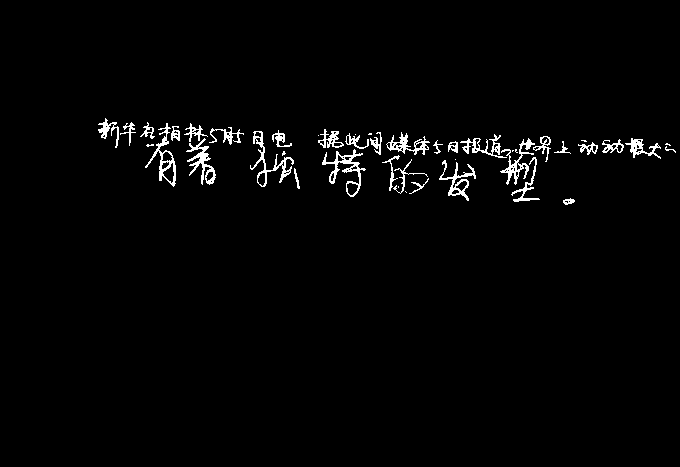 新华社柏林5月5日电 据此间媒体5日报道,世界上动动最大
有着独特的发型。